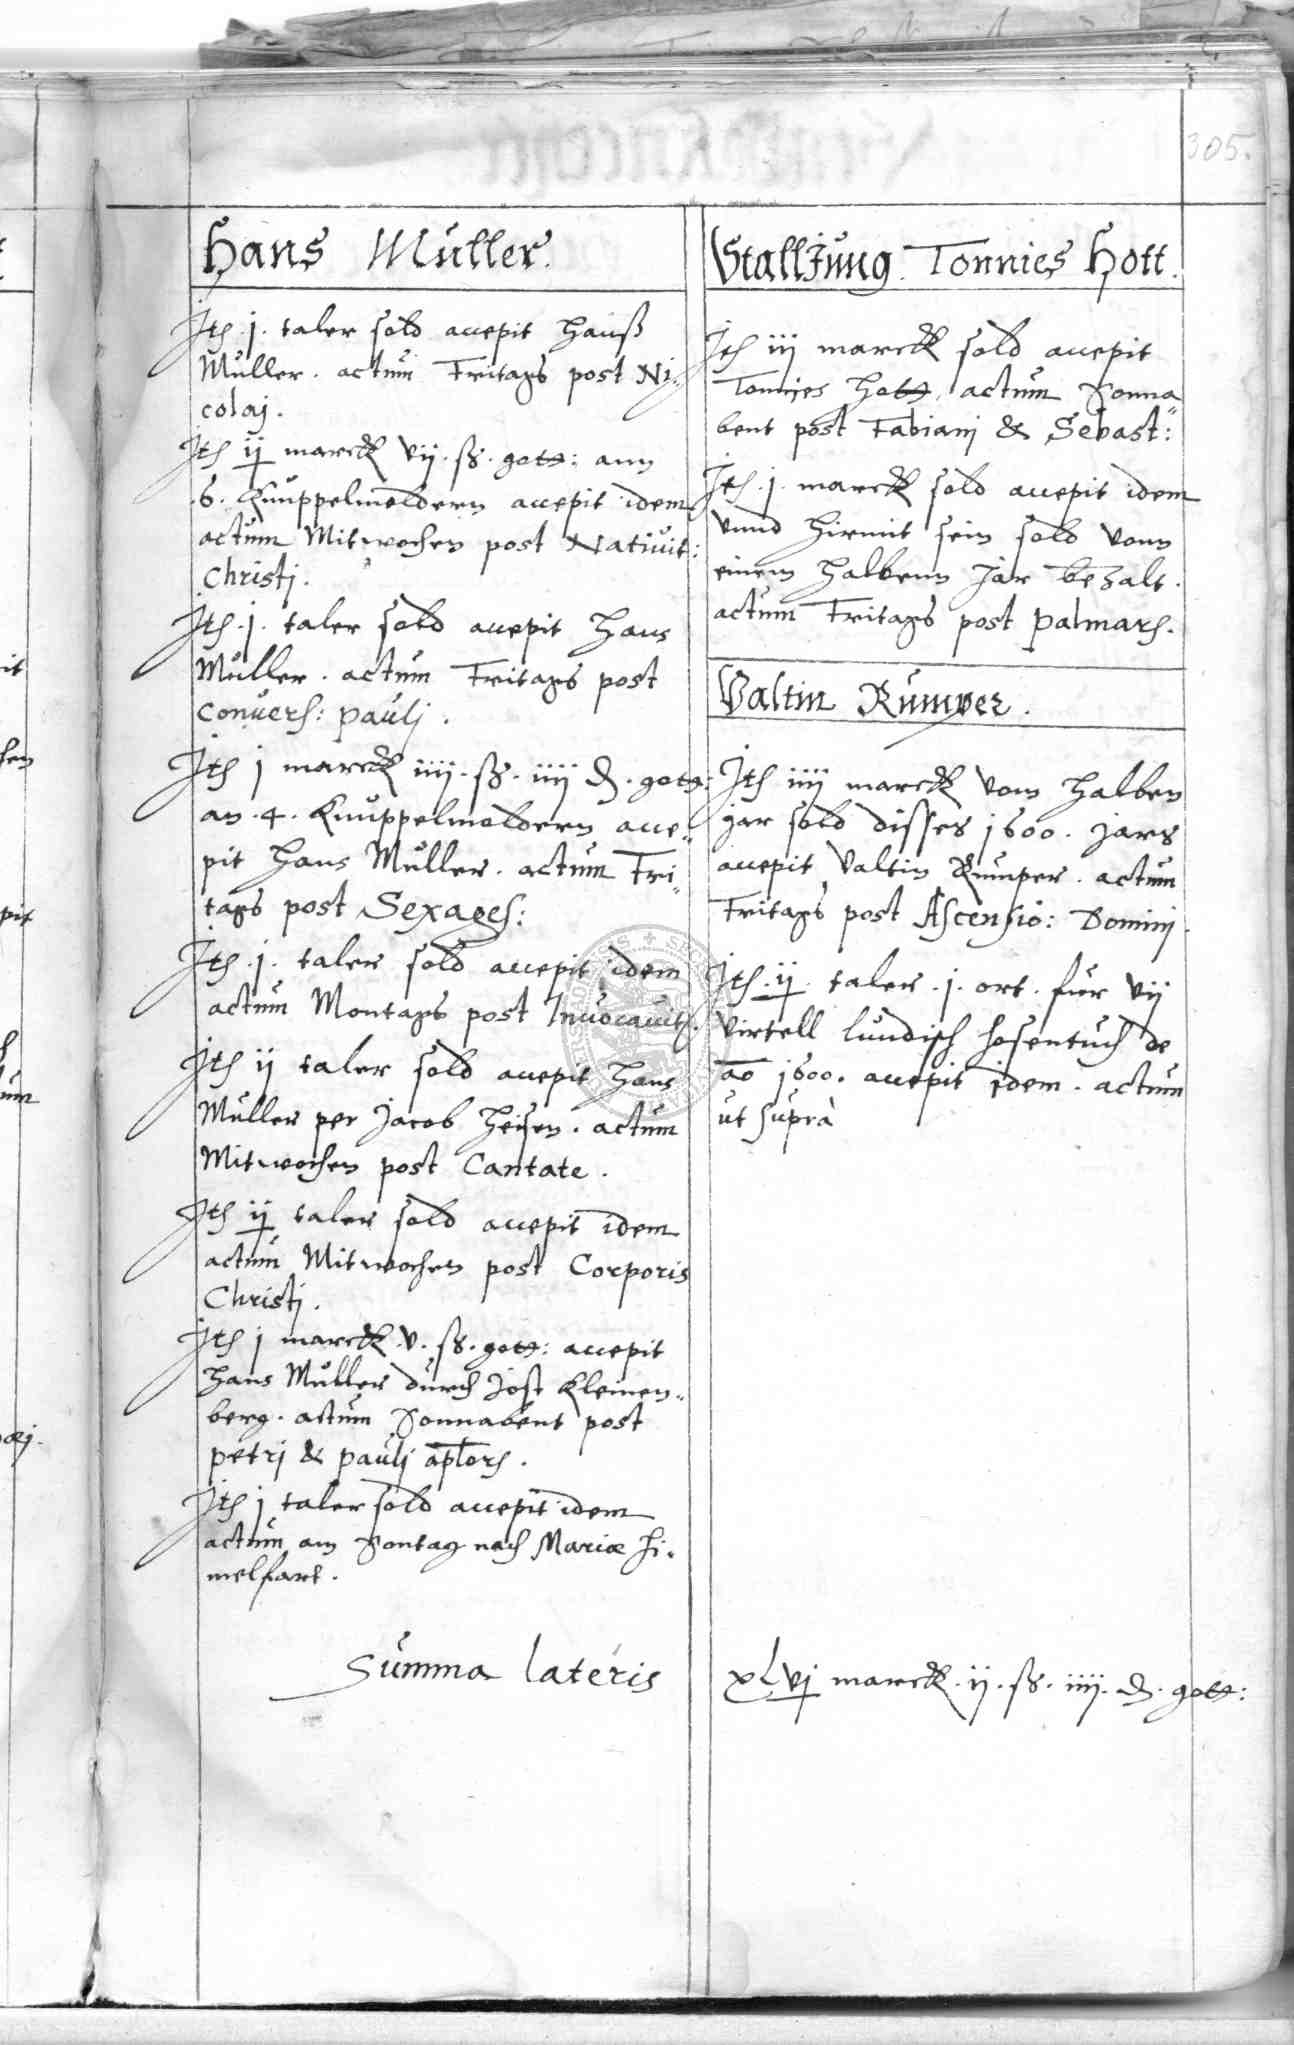 305.
Hans Müller.
Jtē .j. taler sold accepit Hanß
Müller. actum Fritags post Ni,,
colaj.
Jtē ij marck vij. ß. gott: ann
.6. Knüppelmoldern accepit idem
actum Mitwochen post Nativit:
Christj.
Jtē .j. taler sold accepit Hans
Müller. actum Fritags post
Conuers: paulj.
Jtē j marck iiij. ß. iiij ₰. gott:
an .4. Knüppelmoldern acce,,
pit Hans Müller. actum Fri,,
tags post Sexages:
Jtē .j. taler sold accepit idem
actum Montags post Inuocauit.
Jtē ij taler sold accepit Hans
Müller per Jacob Heisen. actum
Mitwochen post Cantate.
Jtē ij taler sold accepit idem
actum Mitwochen post Corporis
Christj.
Jtē j marck .v. ß. gott: accepit
Hans Müller durch Jost Kleinen,,
berg. actum Sonnabent post
petrj & paulj aptors.
Jtē j taler sold accepit idem
actum am Sontag nach Mariæ Hi,,
melfart.
Summa lateris
StallJung. Tonnies Hott.
Jtē iij marck sold accepit
Tonnies Hott, actum Sonna,,
bent post Fabianj & Sebast:
Jtē .j. marck sold accepit idem
vnnd hirmit sein sold vonn
einem halbenn Jar bezalt.
actum Fritags post palmars.
Valtin Rumper.
Jtē iiij marck vom halben
jar sold disses 1600. jars
accepit Valtin Rumper. actum
Fritags post Ascensio: Dominj.
Jtē .ij. taler .j. ort. für vij
virtell lundisch hosentuch de
ao 1600. accepit idem. actum
ut suprà
xLvj marck .ij. ß. iiij. ₰. gott: